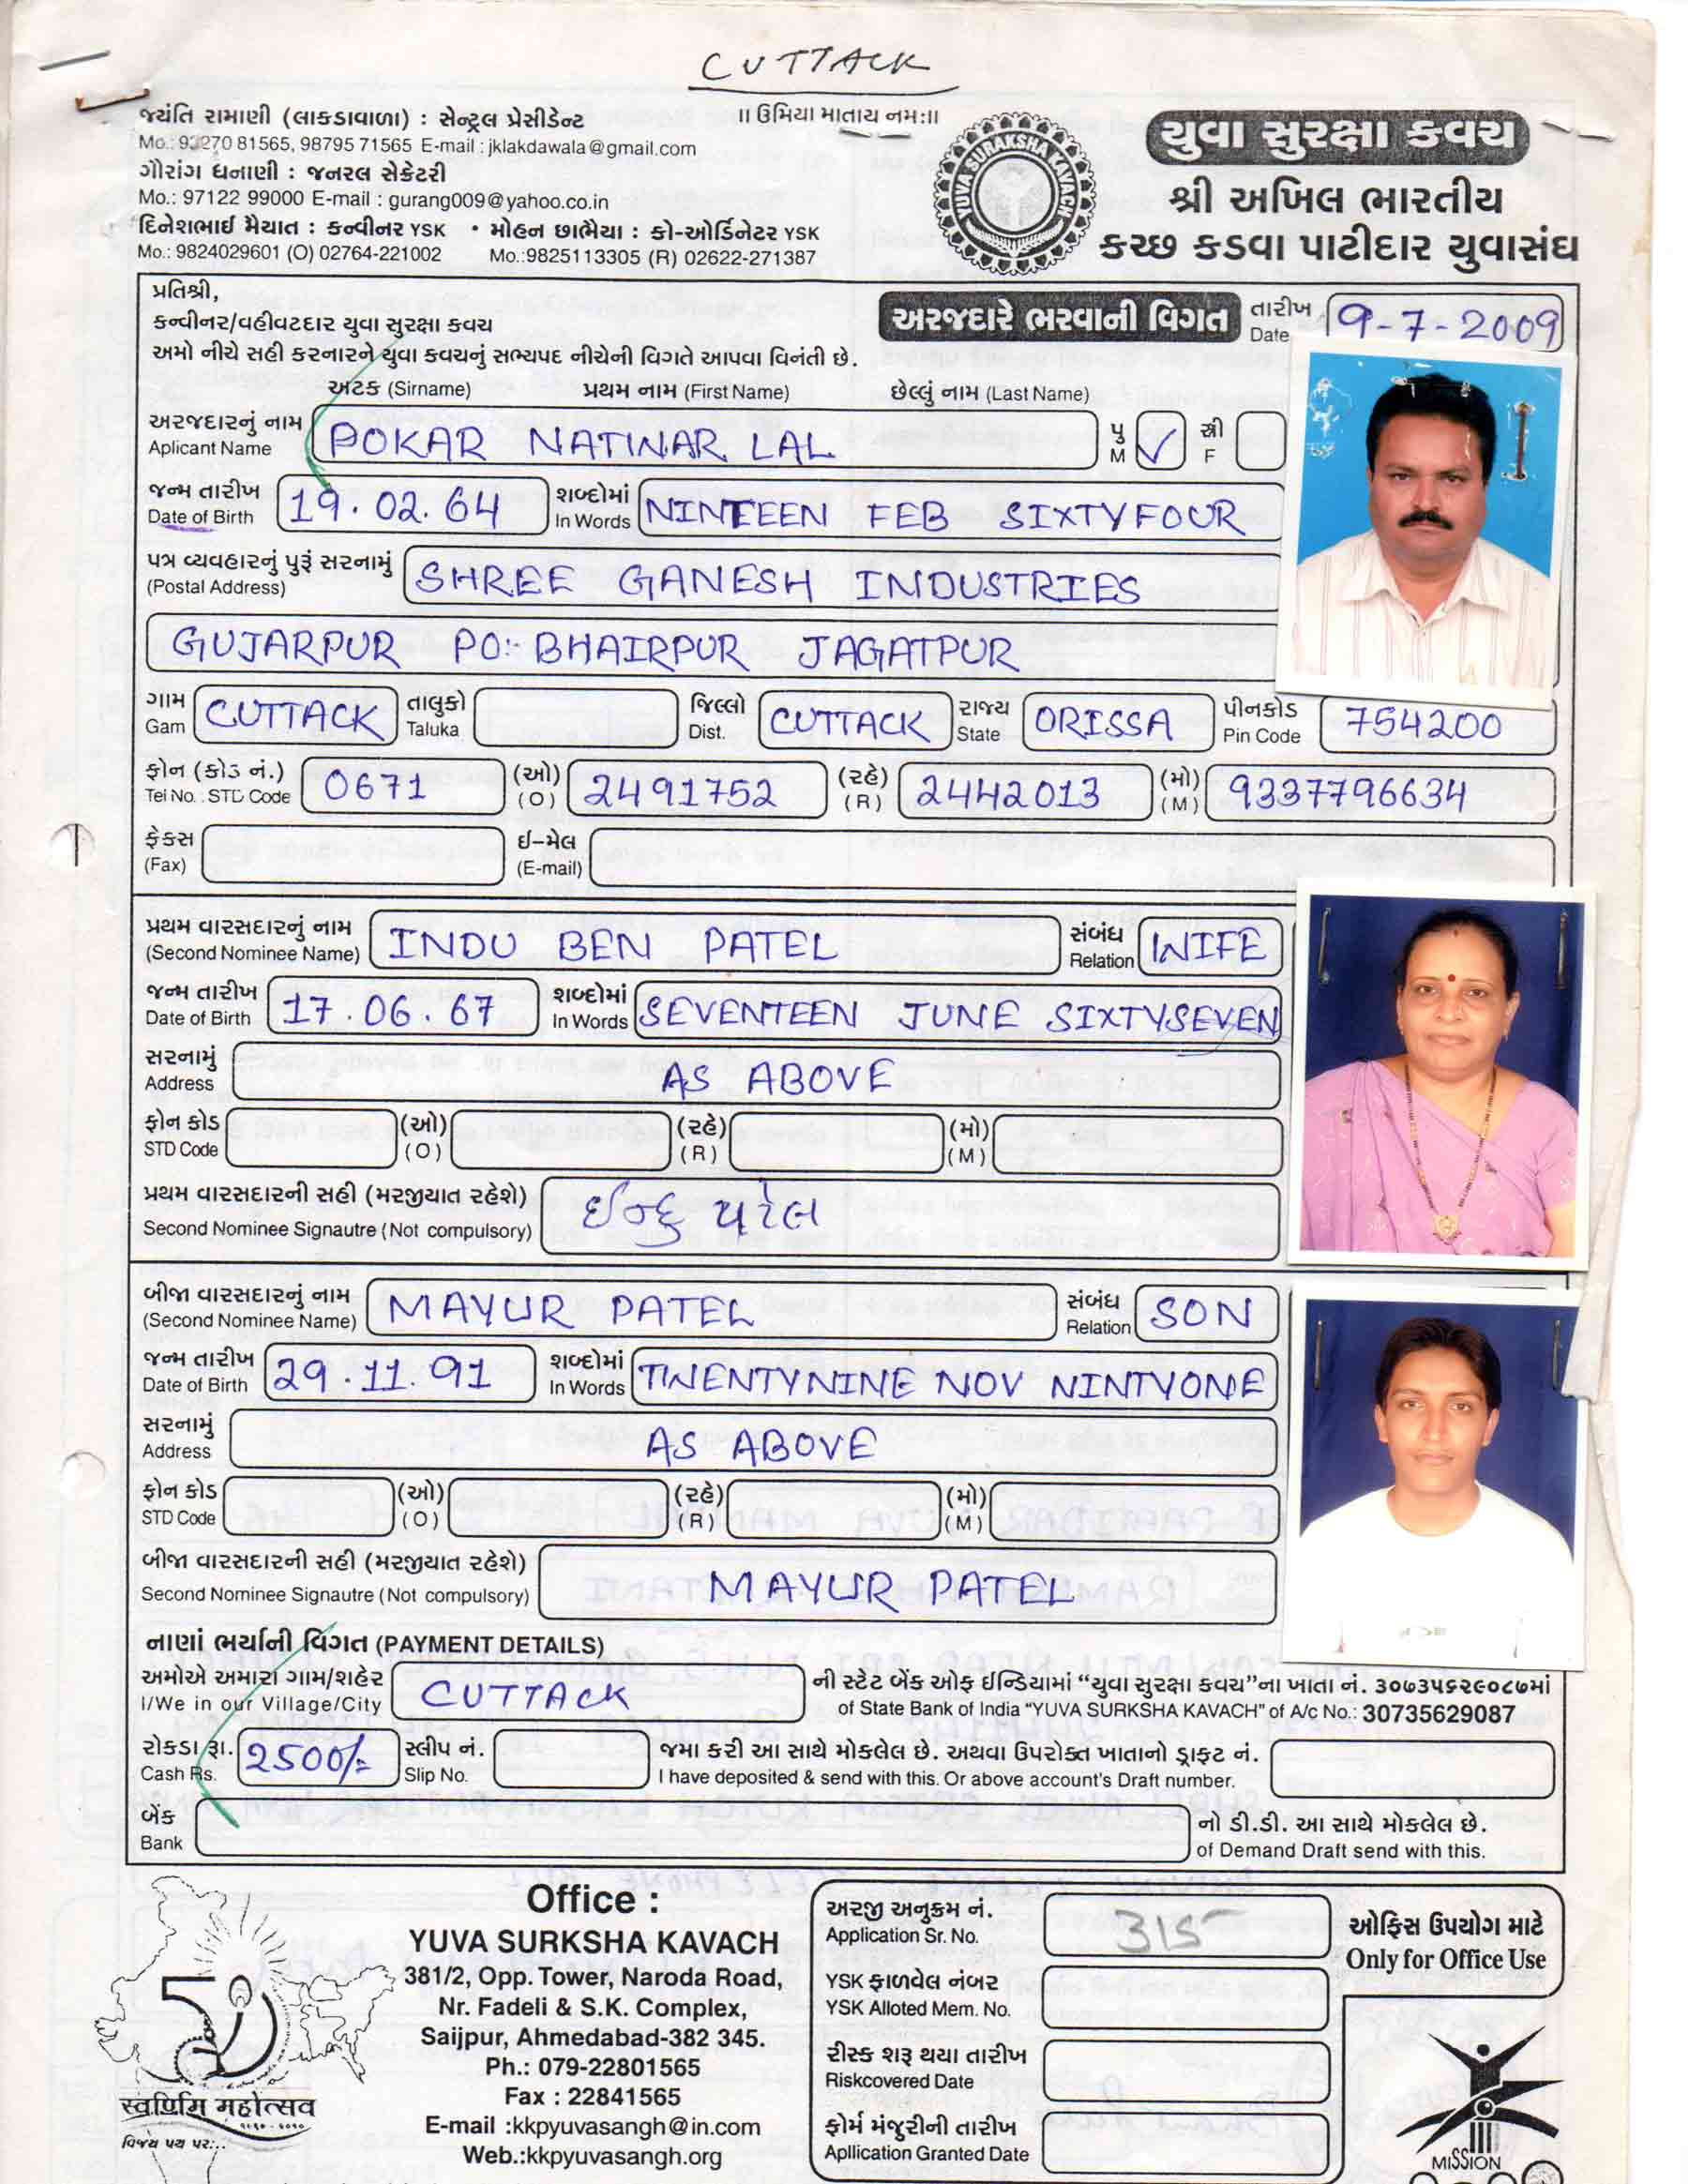 CUTTACK
જ્યંતિ રામાણી (લાકડાવાળા) : સેન્ટ્રલ પ્રેસીડેન્ટ
Mo.: 93270 81565, 98795 71565 E-mail : jklakdawala@gmail.com
ગૌરાંગ ધનાણી : જનરલ સેક્રેટરી
Mo.: 97122 99000 E-mail : gurang009@yahoo.co.in
દિનેશભાઈ મૈયાત : કન્વીનર YSK • મોહન છાભૈયા : કો-ઓર્ડિનેટર YSK
Mo.: 9824029601 (O) 02764-221002 Mo.:9825113305 (R) 02622-271387
॥ ઉમિયા માતાય નમઃ॥
YUVA SURAKSHA KAVACH
યુવા સુરક્ષા કવચ
શ્રી અખિલ ભારતીય
કચ્છ કડવા પાટીદાર યુવાસંઘ
પ્રતિશ્રી,
કન્વીનર/વહીવટદાર યુવા સુરક્ષા કવચ
અરજદારે ભરવાની વિગત તારીખ Date 9-7-2009
અમો નીચે સહી કરનારને યુવા કવચનું સભ્યપદ નીચેની વિગતે આપવા વિનંતી છે.
અટક (Sirname) પ્રથમ નામ (First Name) છેલ્લું નામ (Last Name)
અરજદારનું નામ Aplicant Name POKAR NATINAR LAL પુ M ✓ સ્ત્રી F
જન્મ તારીખ Date of Birth 19.02.64 શબ્દોમાં In Words NINTEEN FEB SIXTYFOUR
પત્ર વ્યવહારનું પુરૂં સરનામું (Postal Address) SHREE GANESH INDUSTRIES
GUJARPUR PO:- BHAIRPUR JAGATPUR
ગામ Gam CUTTACK તાલુકો Taluka જિલ્લો Dist. CUTTACK રાજ્ય State ORISSA પીનકોડ Pin Code 754200
ફોન (કોડ નં.) Tel No. STD Code 0671 (ઓ) (O) 2491752 (રહે) (R) 2442013 (મો) (M) 9337796634
ફેક્સ (Fax) ઈ-મેલ (E-mail)
પ્રથમ વારસદારનું નામ (Second Nominee Name) INDU BEN PATEL સંબંધ Relation WIFE
જન્મ તારીખ Date of Birth 17.06.67 શબ્દોમાં In Words SEVENTEEN JUNE SIXTYSEVEN
સરનામું Address AS ABOVE
ફોન કોડ STD Code (ઓ) (O) (રહે) (R) (મો) (M)
પ્રથમ વારસદારની સહી (મરજીયાત રહેશે) Second Nominee Signautre (Not compulsory) ઈન્દુ પટેલ
બીજા વારસદારનું નામ (Second Nominee Name) MAYUR PATEL સંબંધ Relation SON
જન્મ તારીખ Date of Birth 29.11.91 શબ્દોમાં In Words TWENTYNINE NOV NINTYONE
સરનામું Address AS ABOVE
ફોન કોડ STD Code (ઓ) (O) (રહે) (R) (મો) (M)
બીજા વારસદારની સહી (મરજીયાત રહેશે) Second Nominee Signautre (Not compulsory) MAYUR PATEL
નાણાં ભર્યાની વિગત (PAYMENT DETAILS)
અમોએ અમારા ગામ/શહેર CUTTACK ની સ્ટેટ બેંક ઓફ ઈન્ડિયામાં “યુવા સુરક્ષા કવચ”ના ખાતા નં. ૩૦૭૩૫૬૨૯૦૮૭માં
I/We in our Village/City of State Bank of India “YUVA SURKSHA KAVACH” of A/c No.: 30735629087
રોકડા રૂા. Cash Rs. 2500/- સ્લીપ નં. Slip No. જમા કરી આ સાથે મોકલેલ છે. અથવા ઉપરોક્ત ખાતાનો ડ્રાફ્ટ નં.
I have deposited & send with this. Or above account's Draft number.
બેંક Bank નો ડી.ડી. આ સાથે મોકલેલ છે.
of Demand Draft send with this.
स्वर्णिम महोत्सव
વિજય પથ પર...
Office :
YUVA SURKSHA KAVACH
381/2, Opp. Tower, Naroda Road,
Nr. Fadeli & S.K. Complex,
Saijpur, Ahmedabad-382 345.
Ph.: 079-22801565
Fax : 22841565
E-mail :kkpyuvasangh@in.com
Web.:kkpyuvasangh.org
અરજી અનુક્રમ નં. Application Sr. No. 315
YSK ફાળવેલ નંબર YSK Alloted Mem. No.
રીસ્ક શરૂ થયા તારીખ Riskcovered Date
ફોર્મ મંજુરીની તારીખ Apllication Granted Date
ઓફિસ ઉપયોગ માટે
Only for Office Use
MISSION